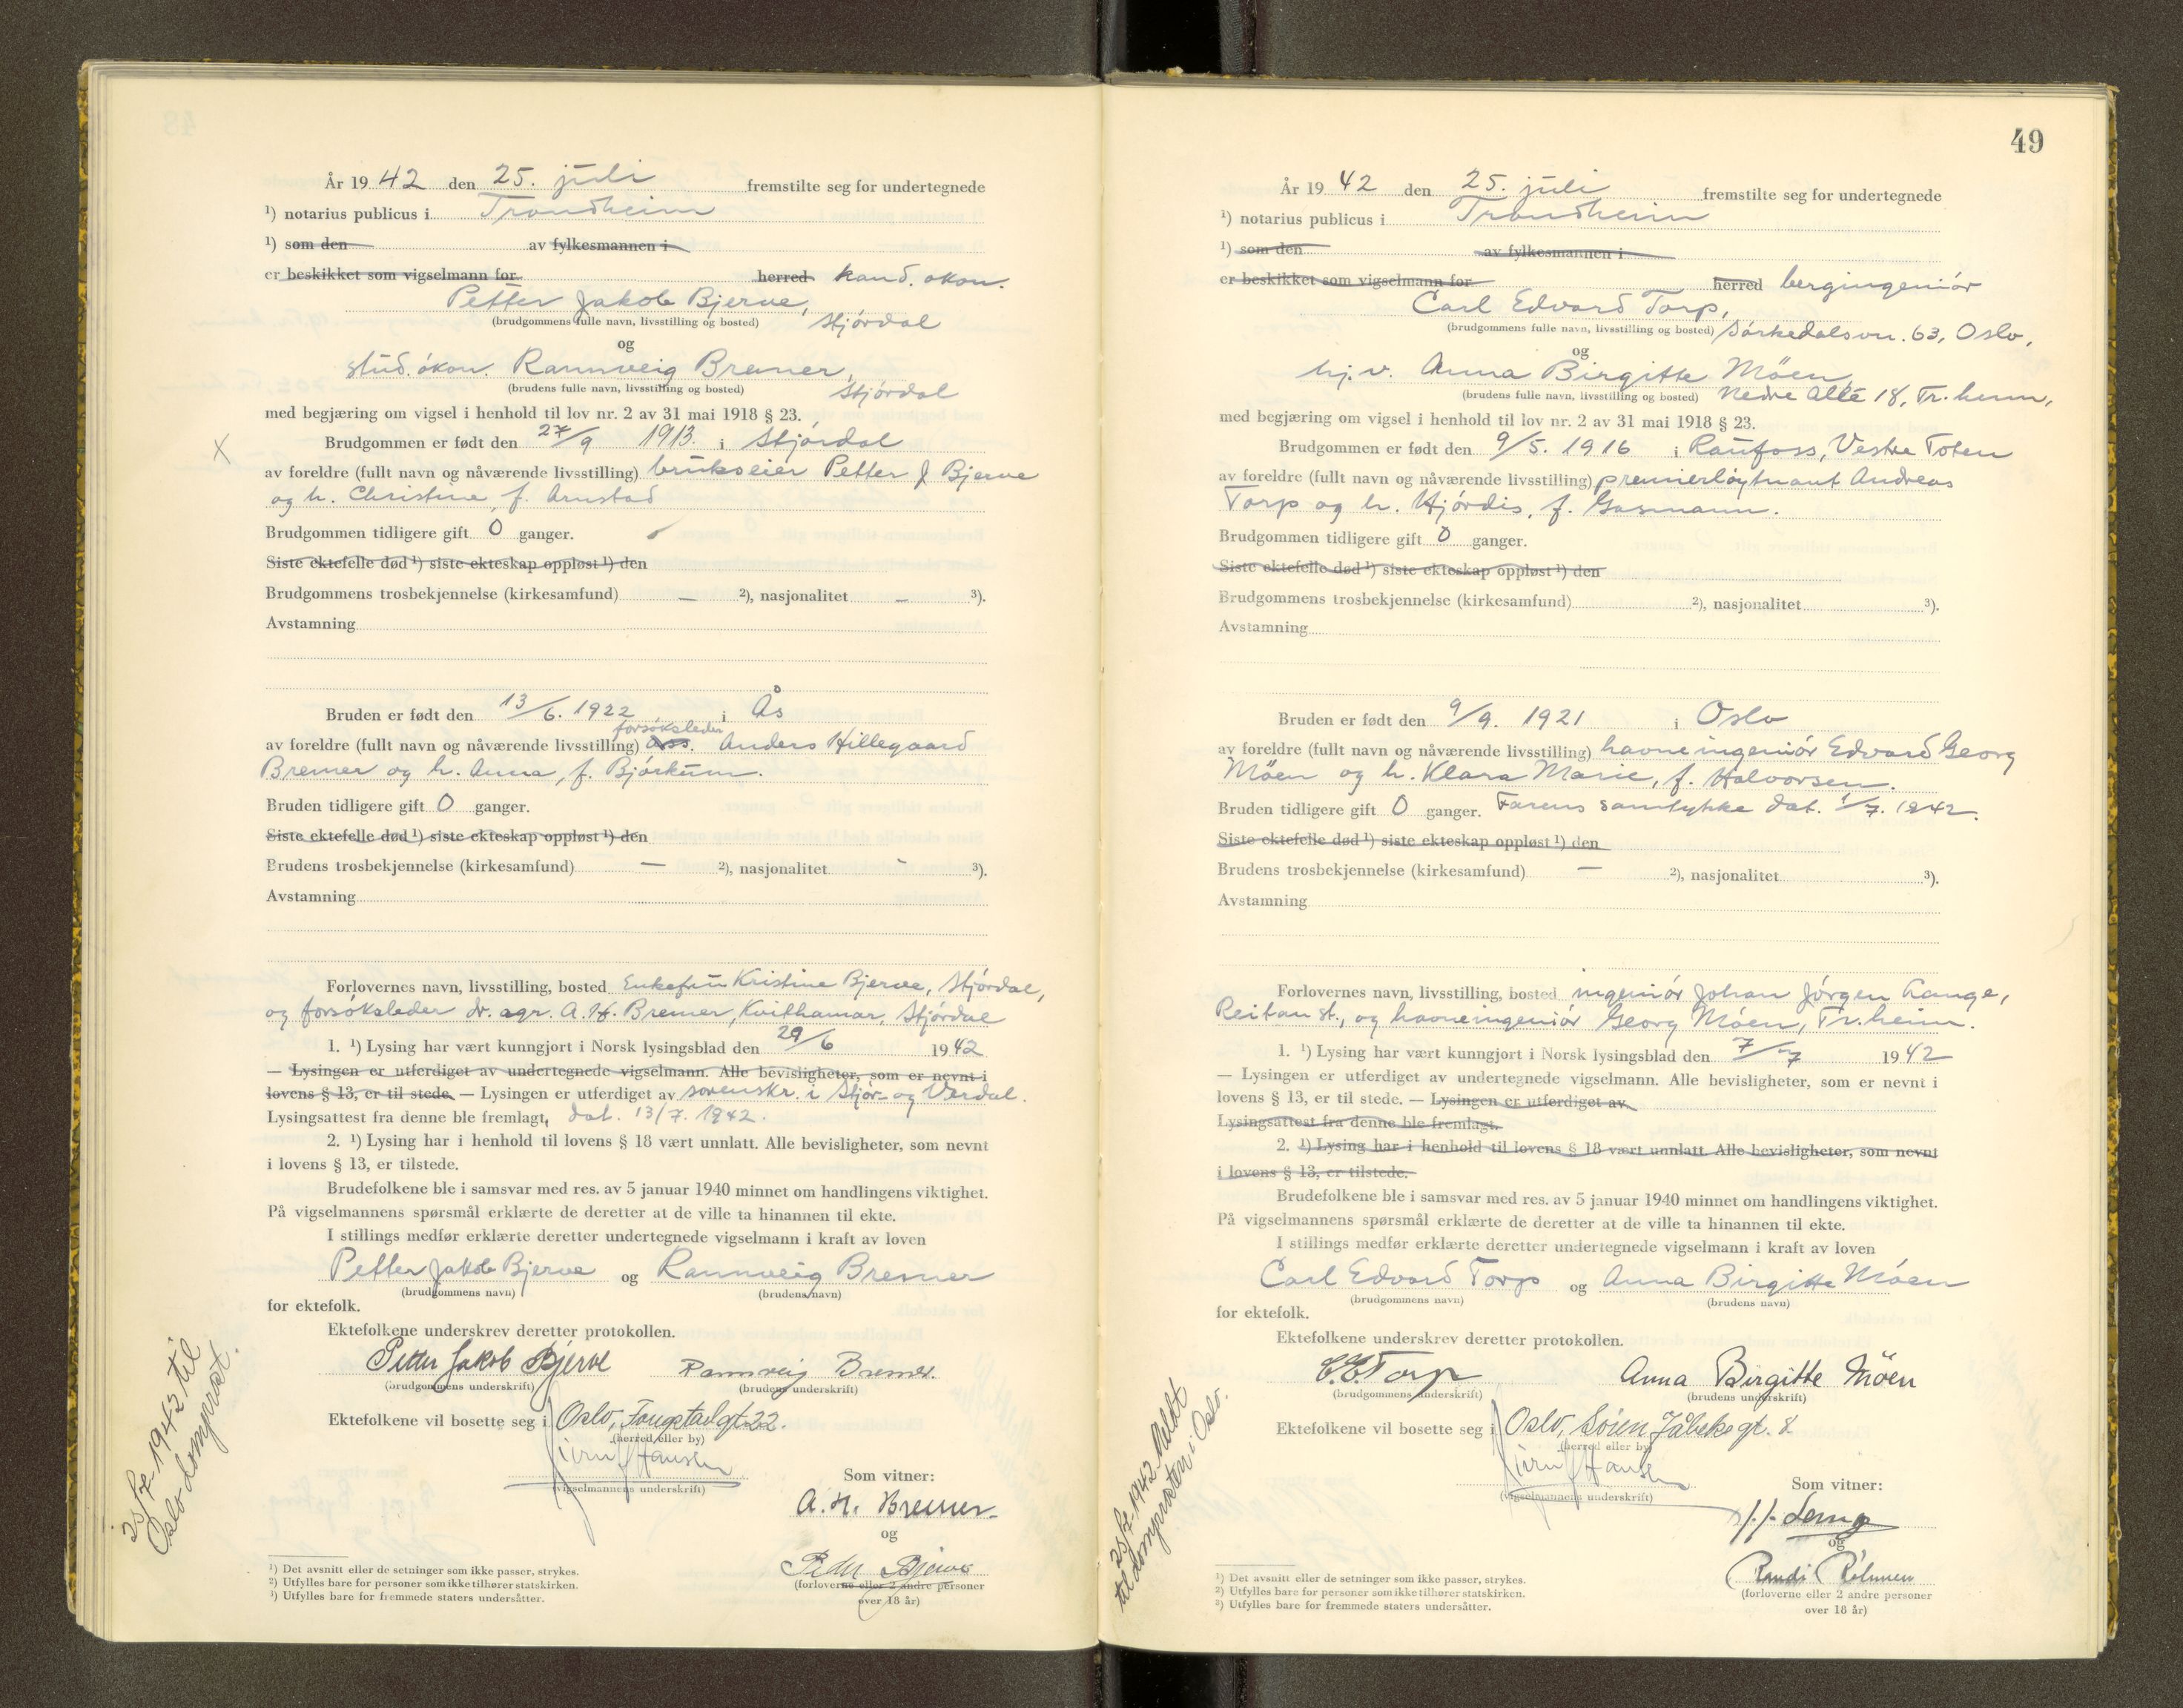 År 19 42 den 25. juli fremstilte seg for undertegnede
¹) notarius publicus i Trondheim
¹) som den av fylkesmannen i
er beskikket som vigselmann for herred kand. økon.
Petter Jakob Bjerve,
(brudgommens fulle navn, livsstilling og bosted) Stjørdal
og
stud. økon. Rannveig Bremer,
(brudens fulle navn, livsstilling og bosted) Stjørdal
med begjæring om vigsel i henhold til lov nr. 2 av 31 mai 1918 § 23.
X Brudgommen er født den 27/9 1913. i Stjørdal
av foreldre (fullt navn og nåværende livsstilling) brukseier Petter J Bjerve
og h. Christine, f. Arnstad
Brudgommen tidligere gift 0 ganger.
Siste ektefelle død ¹) siste ekteskap oppløst ¹) den
Brudgommens trosbekjennelse (kirkesamfund) — ²), nasjonalitet — ³).
Avstamning
Bruden er født den 13/6. 1922 i Ås
forsøksleder
av foreldre (fullt navn og nåværende livsstilling) ass. Anders Hillegaard
Bremer og h. Anna, f. Bjørkum.
Bruden tidligere gift 0 ganger.
Siste ektefelle død ¹) siste ekteskap oppløst ¹) den
Brudens trosbekjennelse (kirkesamfund) — ²), nasjonalitet - ³).
Avstamning
Forlovernes navn, livsstilling, bosted Enkefru Kristine Bjerve, Stjørdal,
og forsøksleder dr. agr. A. H. Bremer, Kvithamar, Stjørdal
1. ¹) Lysing har vært kunngjort i Norsk lysingsblad den 29/6 19 42
— Lysingen er utferdiget av undertegnede vigselmann. Alle bevisligheter, som er nevnt i
lovens § 13, er til stede. — Lysingen er utferdiget av sorenskr. i Stjør- og Verdal.
Lysingsattest fra denne ble fremlagt, dat. 13/7. 1942.
2. ¹) Lysing har i henhold til lovens § 18 vært unnlatt. Alle bevisligheter, som nevnt
i lovens § 13, er tilstede.
Brudefolkene ble i samsvar med res. av 5 januar 1940 minnet om handlingens viktighet.
På vigselmannens spørsmål erklærte de deretter at de ville ta hinannen til ekte.
I stillings medfør erklærte deretter undertegnede vigselmann i kraft av loven
Petter Jakob Bjerve og Rannveig Bremer
(brudgommens navn) (brudens navn)
for ektefolk.
Ektefolkene underskrev deretter protokollen.
Petter Jakob Bjerve Rannveig Bremer.
(brudgommens underskrift) (brudens underskrift)
Ektefolkene vil bosette seg i Oslo, Fougstadgt. 22.
(herred eller by)
Hansen
(vigselmannens underskrift)
Som vitner:
A. H. Bremer.
og
Peder Bjerve
(forloverne eller 2 andre personer
over 18 år)
25/7-1942 til
Oslo domprost.
¹) Det avsnitt eller de setninger som ikke passer, strykes.
²) Utfylles bare for personer som ikke tilhører statskirken.
³) Utfylles bare for fremmede staters undersåtter.
49
År 19 42 den 25. juli fremstilte seg for undertegnede
¹) notarius publicus i Trondheim
¹) som den av fylkesmannen i
er beskikket som vigselmann for herred bergingeniør
Carl Edvard Torp,
(brudgommens fulle navn, livsstilling og bosted) Sørkedalsvn. 63, Oslo,
og
hj.v. Anna Birgitte Möen,
(brudens fulle navn, livsstilling og bosted) Nedre Allé 18, Tr.heim,
med begjæring om vigsel i henhold til lov nr. 2 av 31 mai 1918 § 23.
Brudgommen er født den 9/5. 1916 i Raufoss, Vestre Toten
av foreldre (fullt navn og nåværende livsstilling) premierløytnant Andreas
Torp og h. Hjørdis, f. Gasmann.
Brudgommen tidligere gift 0 ganger.
Siste ektefelle død ¹) siste ekteskap oppløst ¹) den
Brudgommens trosbekjennelse (kirkesamfund) ²), nasjonalitet ³).
Avstamning
Bruden er født den 9/9. 1921 i Oslo
av foreldre (fullt navn og nåværende livsstilling) havneingeniør Edvard Georg
Möen og h. Klara Marie, f. Halvorsen.
Bruden tidligere gift 0 ganger. Farens samtykke dat. 1/7. 1942.
Siste ektefelle død ¹) siste ekteskap oppløst ¹) den
Brudens trosbekjennelse (kirkesamfund) — ²), nasjonalitet ³).
Avstamning
Forlovernes navn, livsstilling, bosted ingeniør Johan Jørgen Lange,
Reitan st., og havneingeniør Georg Möen, Tr.heim.
1. ¹) Lysing har vært kunngjort i Norsk lysingsblad den 7/7 19 42
— Lysingen er utferdiget av undertegnede vigselmann. Alle bevisligheter, som er nevnt i
lovens § 13, er til stede. — Lysingen er utferdiget av
Lysingsattest fra denne ble fremlagt.
2. ¹) Lysing har i henhold til lovens § 18 vært unnlatt. Alle bevisligheter, som nevnt
i lovens § 13, er tilstede.
Brudefolkene ble i samsvar med res. av 5 januar 1940 minnet om handlingens viktighet.
På vigselmannens spørsmål erklærte de deretter at de ville ta hinannen til ekte.
I stillings medfør erklærte deretter undertegnede vigselmann i kraft av loven
Carl Edvard Torp og Anna Birgitte Möen
(brudgommens navn) (brudens navn)
for ektefolk.
Ektefolkene underskrev deretter protokollen.
C.E. Torp Anna Birgitte Möen
(brudgommens underskrift) (brudens underskrift)
Ektefolkene vil bosette seg i Oslo, Sören Jåbeks gt. 8
(herred eller by)
Hansen
(vigselmannens underskrift)
Som vitner:
J. J. Lange
og
Randi
(forloverne eller 2 andre personer
over 18 år)
25/7-1942 Meldt
til domprosten i Oslo.
¹) Det avsnitt eller de setninger som ikke passer, strykes.
²) Utfylles bare for personer som ikke tilhører statskirken.
³) Utfylles bare for fremmede staters undersåtter.